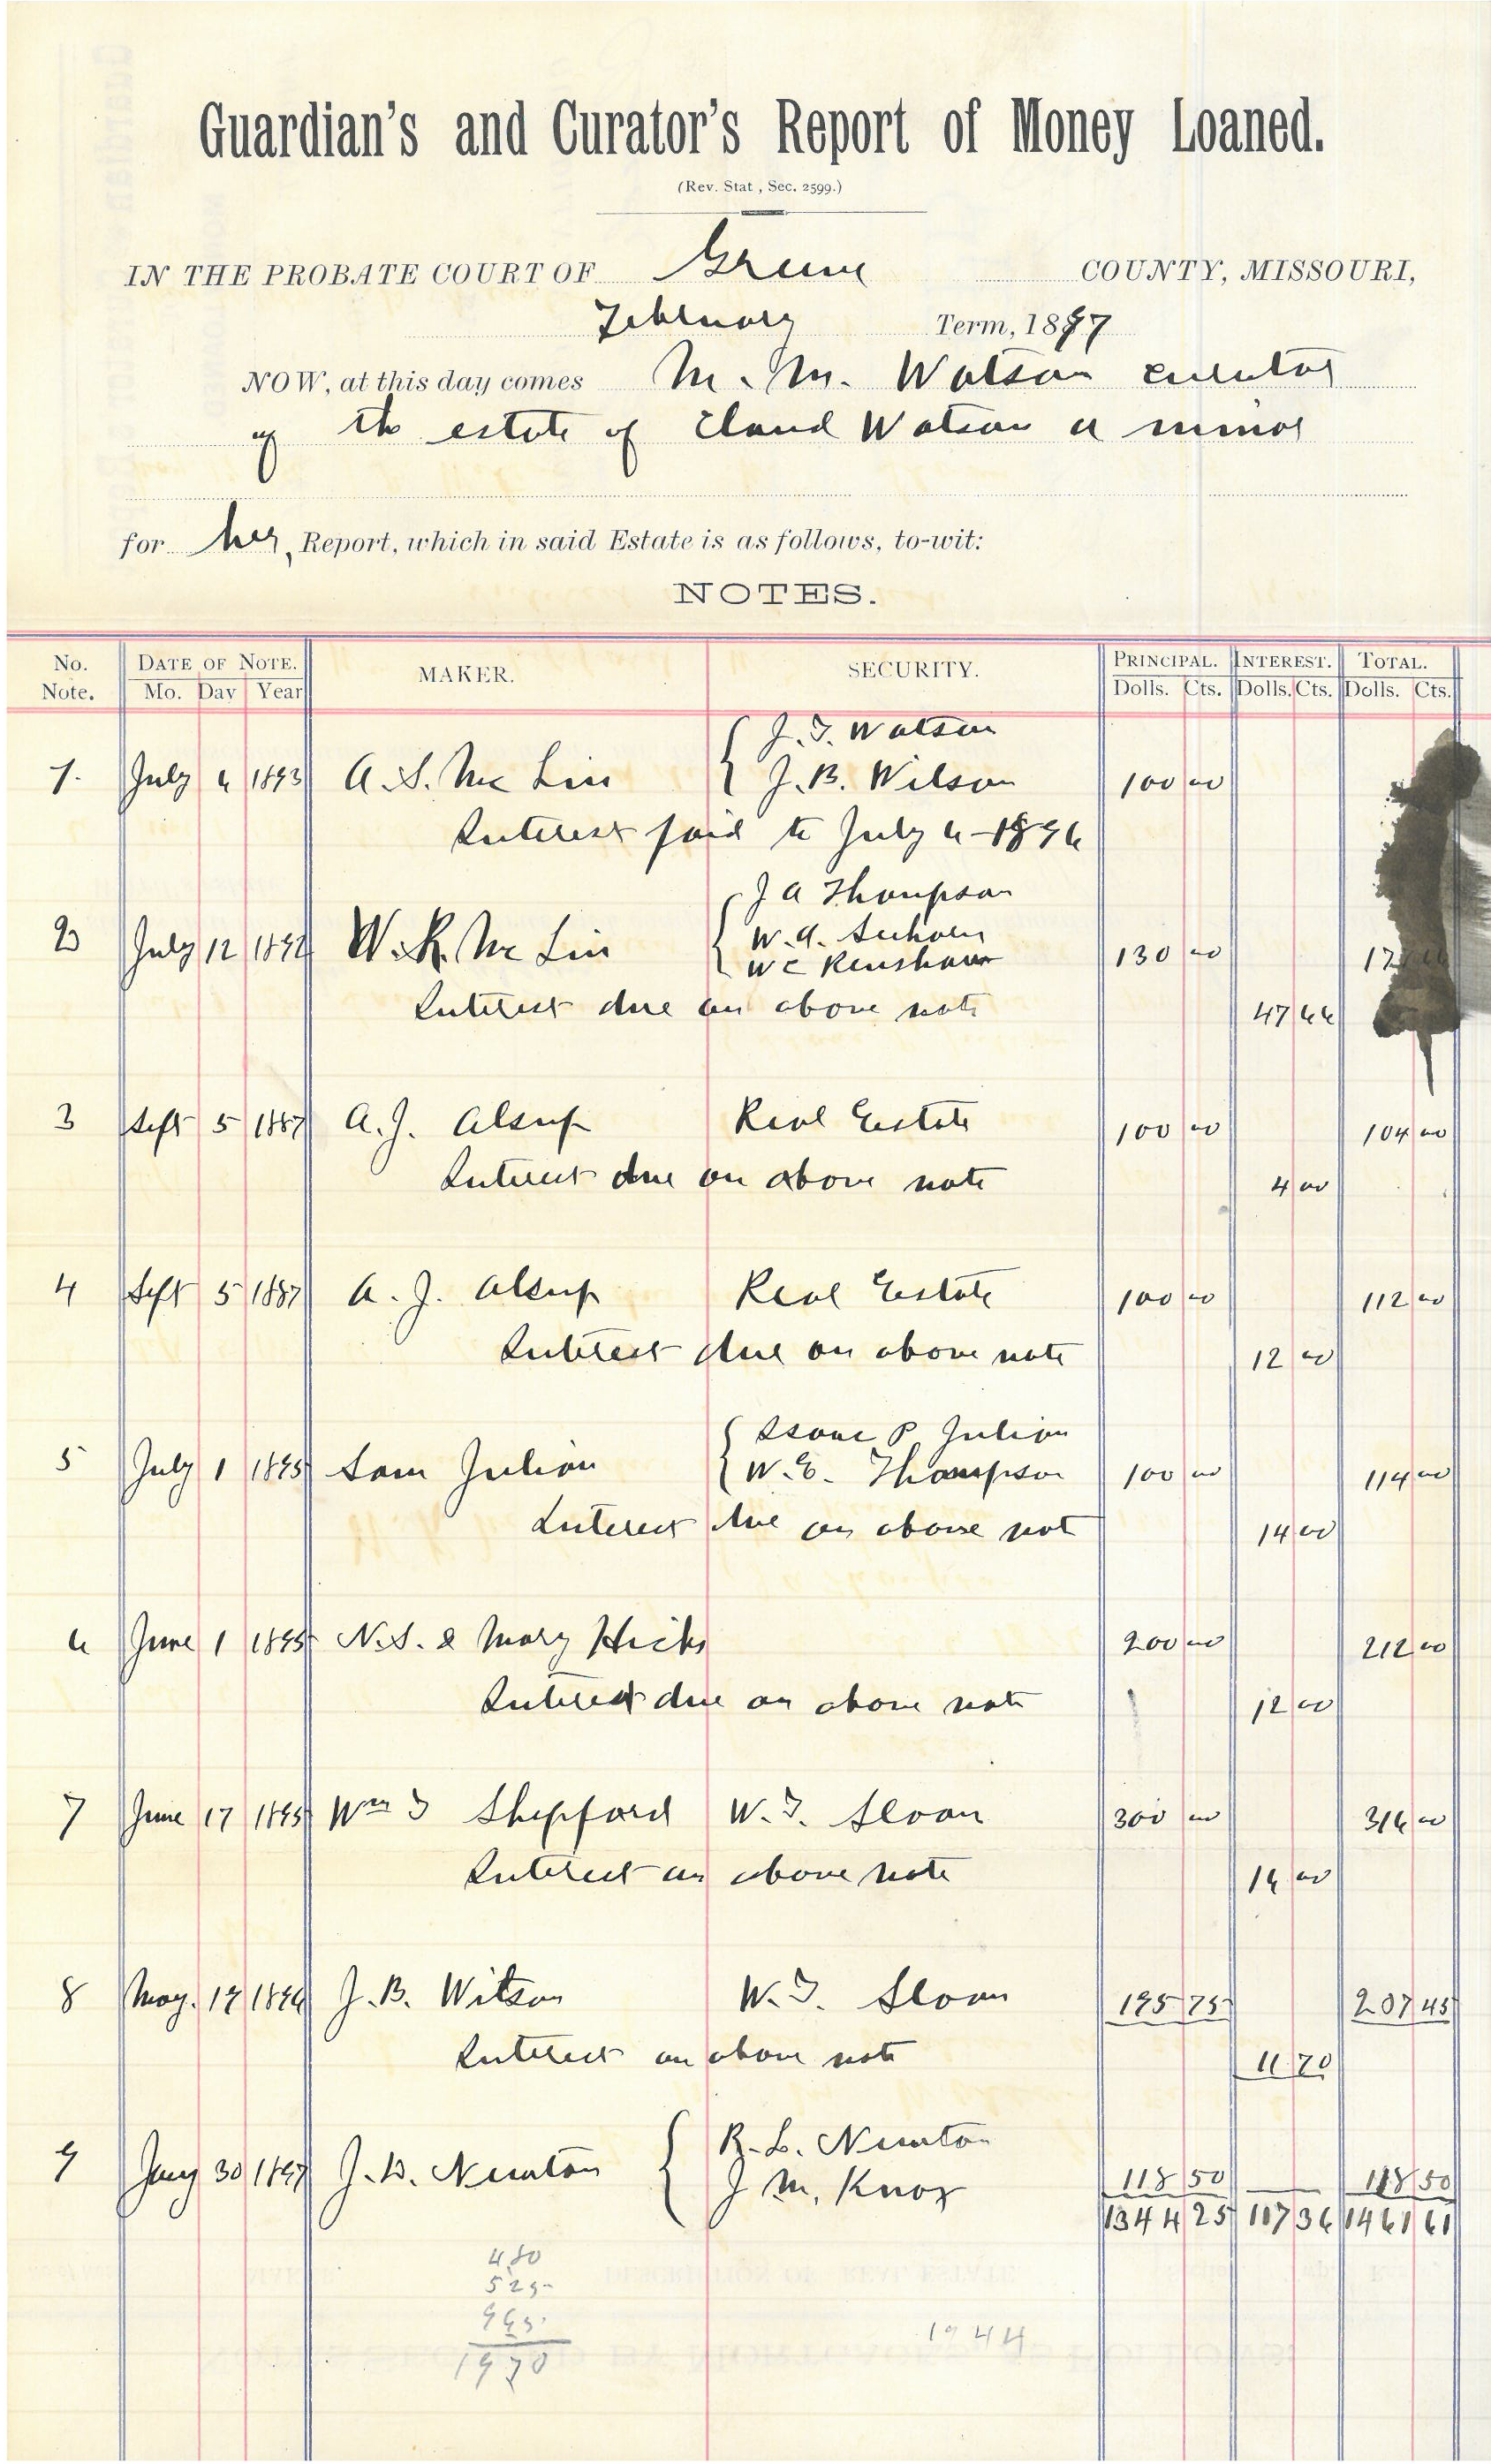 Guardian's and Curator's Report of Money Loaned.
(Rev. Stat, Sec. 2599.)
IN THE PROBATE COURT OF Greene COUNTY, MISSOURI,
February Term, 1897
NOW, at this day comes M. M. Watson curator
of the estate of Claud Watson a minor
for her Report, which in said Estate is as follows, to-wit:
NOTES.
No. Note. DATE OF NOTE. MAKER. SECURITY. PRINCIPAL. INTEREST. TOTAL.
Mo. Day Year Dolls. Cts. Dolls. Cts. Dolls. Cts.
J. T. Watson
1. July 6 1893 A. S. McLin J. B. Wilson 100 00
Interest paid to July 6-1896
J A Thompson
W. A.
2 July 12 1892 W. R. McLin W C Renshaw 130 00
Interest due on above note 47 66
3 Sept 5 1887 A. J. Alsup Real Estate 100 00 104 00
Interest due on above note 4 00
4 Sept 5 1887 A. J. Alsup Real Estate 100 00 112 00
Interest due on above note 12 00
Isaac P Julian
5 July 1 1895 Sam Julian W. E. Thompson 100 00 114 00
Interest due on above not 14 00
6 June 1 1895 N. S. & Mary Hicks 200 00 212 00
Interest due on above note 12 00
7 June 17 1895 Wm T Shepford W. T. Sloan 300 00 316 00
Interest on above note 16 00
8 May. 19 1896 J. B. Witson W. T. Sloan 195 75 207 45
Interest on above note 11 70
R. L. Newton
9 Jany 30 1897 J. D. Newton J M. Knox 118 50 118 50
1344 25 117 36 1461 61
480
525
965
1970
1944